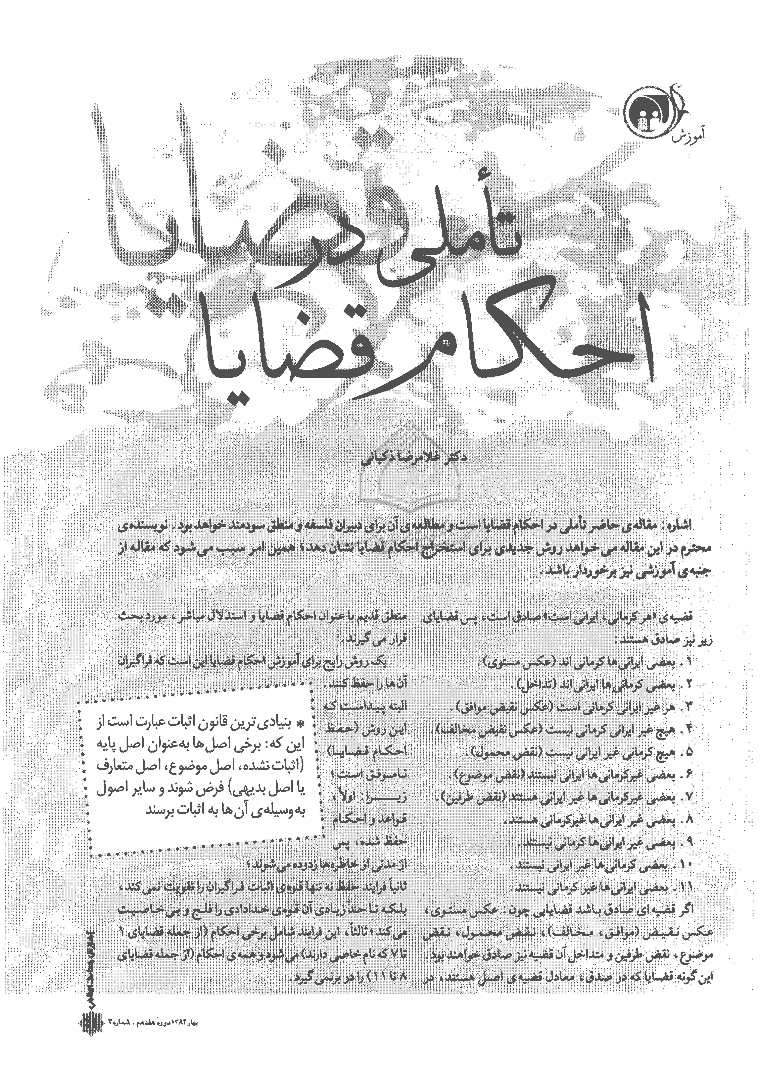 آموزش
تأملی در
قضایا
احکام قضایا
دکتر غلامرضا ذکیانی
اشاره: مقاله‌ی حاضر تأملی در احکام قضایا است و مطالعه‌ی آن برای دبیران فلسفه و منطق سودمند خواهد بود. نویسنده‌ی
محترم در این مقاله می‌خواهد روش جدیدی برای استخراج احکام قضایا نشان دهد؛ همین امر سبب می‌شود که مقاله از
جنبه‌ی آموزشی نیز برخوردار باشد.
قضیه‌ی «هر کرمانی، ایرانی است» صادق است، پس قضایای
زیر نیز صادق هستند:
۱. بعضی ایرانی‌ها کرمانی اند (عکس مستوی).
۲. بعضی کرمانی‌ها ایرانی اند (تداخل).
۳. هر غیر ایرانی غیر کرمانی است (عکس نقیض موافق).
۴. هیچ غیر ایرانی کرمانی نیست (عکس نقیض مخالف).
۵. هیچ کرمانی غیر ایرانی نیست (نقض محمول).
۶. بعضی غیرکرمانی‌ها ایرانی نیستند (نقض موضوع).
۷. بعضی غیرکرمانی‌ها غیر ایرانی هستند (نقض طرفین).
۸. بعضی غیر ایرانی‌ها غیرکرمانی هستند.
۹. بعضی غیر ایرانی‌ها کرمانی نیستند.
۱۰. بعضی کرمانی‌ها غیر ایرانی نیستند.
۱۱. بعضی ایرانی‌ها غیر کرمانی نیستند.
اگر قضیه‌ای صادق باشد قضایایی چون: عکس مستوی،
عکس نقیض (موافق، مخالف)، نقض محمول، نقض
موضوع، نقض طرفین و متداخل آن قضیه نیز صادق خواهند بود.
این گونه قضایا که در صدق، معادل قضیه‌ی اصل هستند، در
منطق قدیم با عنوان احکام قضایا و استدلال مباشر، مورد بحث
قرار می‌گیرند.
یک روش رایج برای آموزش احکام قضایا این است که فراگیران
آن‌ها را حفظ کنند.
البته پیداست که
این روش (حفظ
احکام قضایا)
ناموفق است؛
زیرا: اولاً،
قواعد و احکام
حفظ شده، پس
از مدتی از خاطره‌ها زدوده می‌شوند؛
ثانیاً فرایند حفظ نه تنها قوه‌ی اثبات فراگیران را تقویت نمی‌کند،
بلکه تا حد زیادی آن قوه‌ی خدادادی را فلج و بی‌خاصیت
می‌کند؛ ثالثاً، این فرایند شامل برخی احکام (از جمله قضایای ۱
تا ۷ که نام خاصی دارند) می‌شود و همه‌ی احکام (از جمله قضایای
۸ تا ۱۱) را در برنمی‌گیرد.
* بنیادی‌ترین قانون اثبات عبارت است از
این که: برخی اصل‌ها به‌عنوان اصل پایه
(اثبات نشده، اصل موضوع، اصل متعارف
یا اصل بدیهی) فرض شوند و سایر اصول
به‌وسیله‌ی آن‌ها به اثبات برسند
بهار ۱۳۸۲ دوره هفدهم، شماره ۳